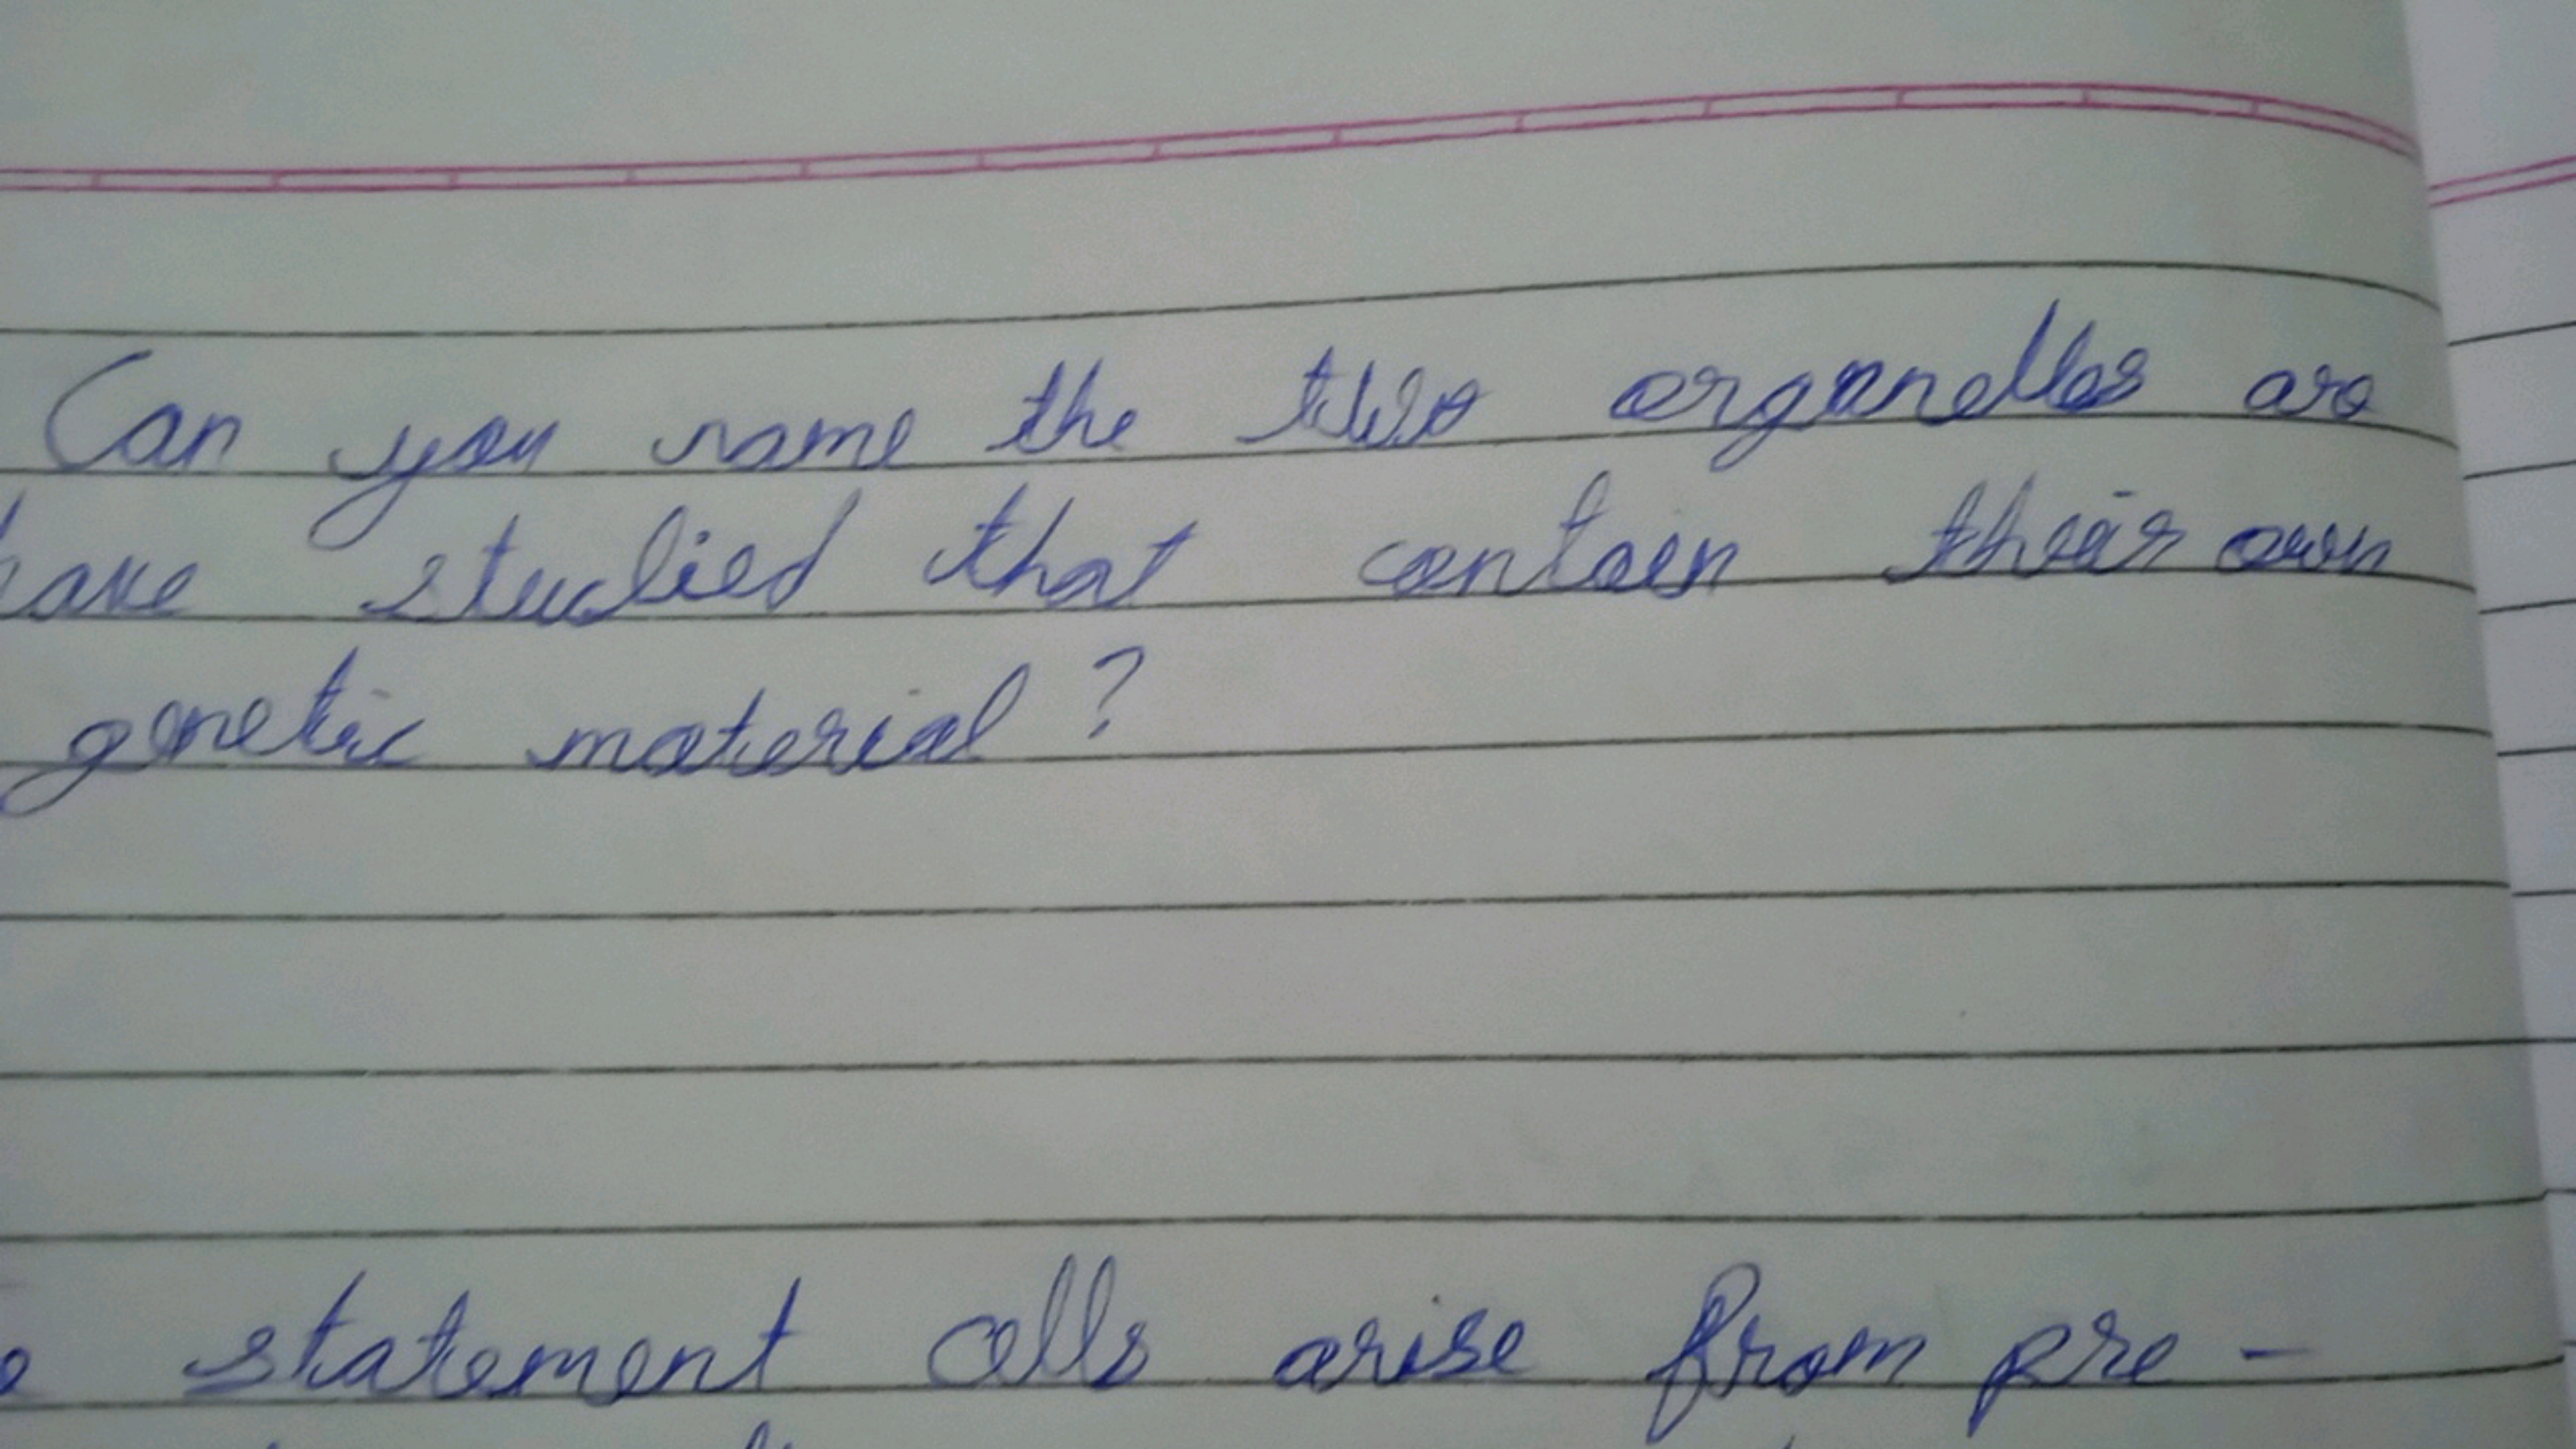 Can you name the two organelles are
have studied that contain their own
genetic material?
statement cells arise from pre-